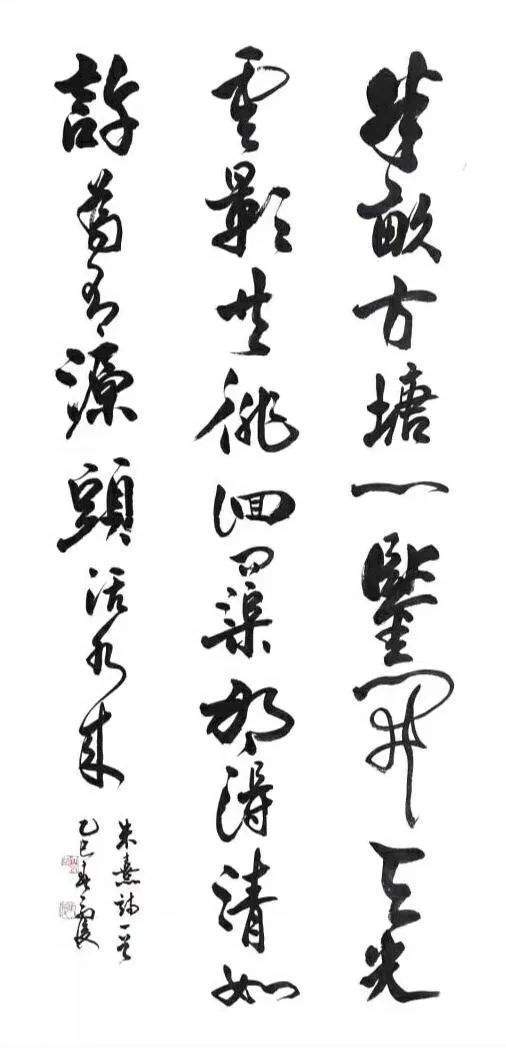 半畝方塘一鑒開天光
雲影共徘徊問渠那得清如
許為有源頭活水來
朱熹詩一首
乙巳春